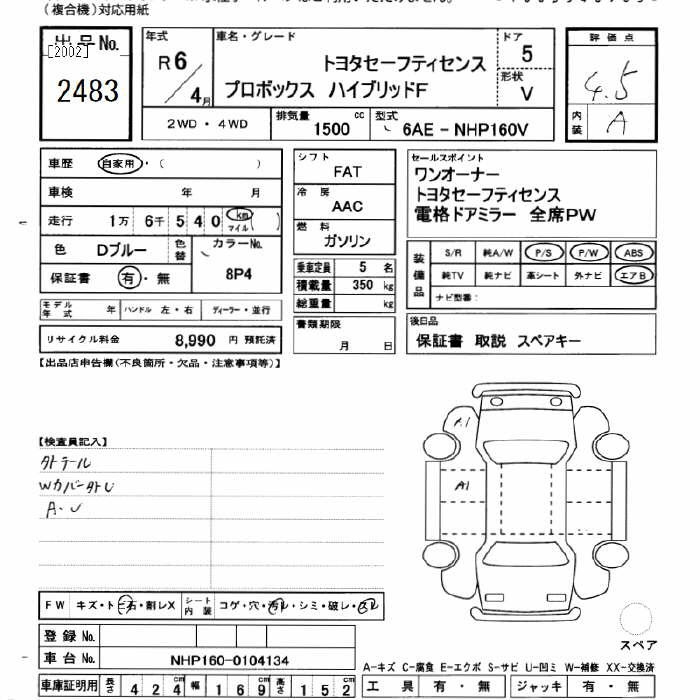 (複合機)対応用紙
出品No.
[2002]
2483
年式
R6/4月
車名・グレード
トヨタセーフティセンス
プロボックス ハイブリッドF
ドア
5
形状
V
2WD・4WD
排気量
1500 cc
型式
6AE - NHP160V
評価点
4.5
内装
A
車歴 自家用・( )
車検 年 月
走行 1万 6千 5 4 0 km マイル ( )
色 Dブルー 色替 カラーNo.
8P4
保証書 有・無
モデル年式 年 ハンドル 左・右 ディーラー・並行
リサイクル料金 8,990 円 預託済
シフト
FAT
冷房
AAC
燃料
ガソリン
乗車定員 5 名
積載量 350 kg
総重量 kg
書類期限
月 日
セールスポイント
ワンオーナー
トヨタセーフティセンス
電格ドアミラー 全席PW
装備品
S/R 純A/W P/S P/W ABS
純TV 純ナビ 革シート 外ナビ エアB
ナビ型番:
後日品
保証書 取説 スペアキー
【出品店申告欄(不良箇所・欠品・注意事項等)】
【検査員記入】
タトテール
Wカバー タトU
A・U
A1
A1
スペア
FW キズ・トビ石・割レX シート内装 コゲ・穴・汚レ・シミ・破レ・スレ
登録No.
車台No. NHP160-0104134
車庫証明用 長さ 424 cm 幅 169 cm 高さ 152 cm
A-キズ C-腐食 E-エクボ S-サビ U-凹ミ W-補修 XX-交換済
工具 有・無 ジャッキ 有・無